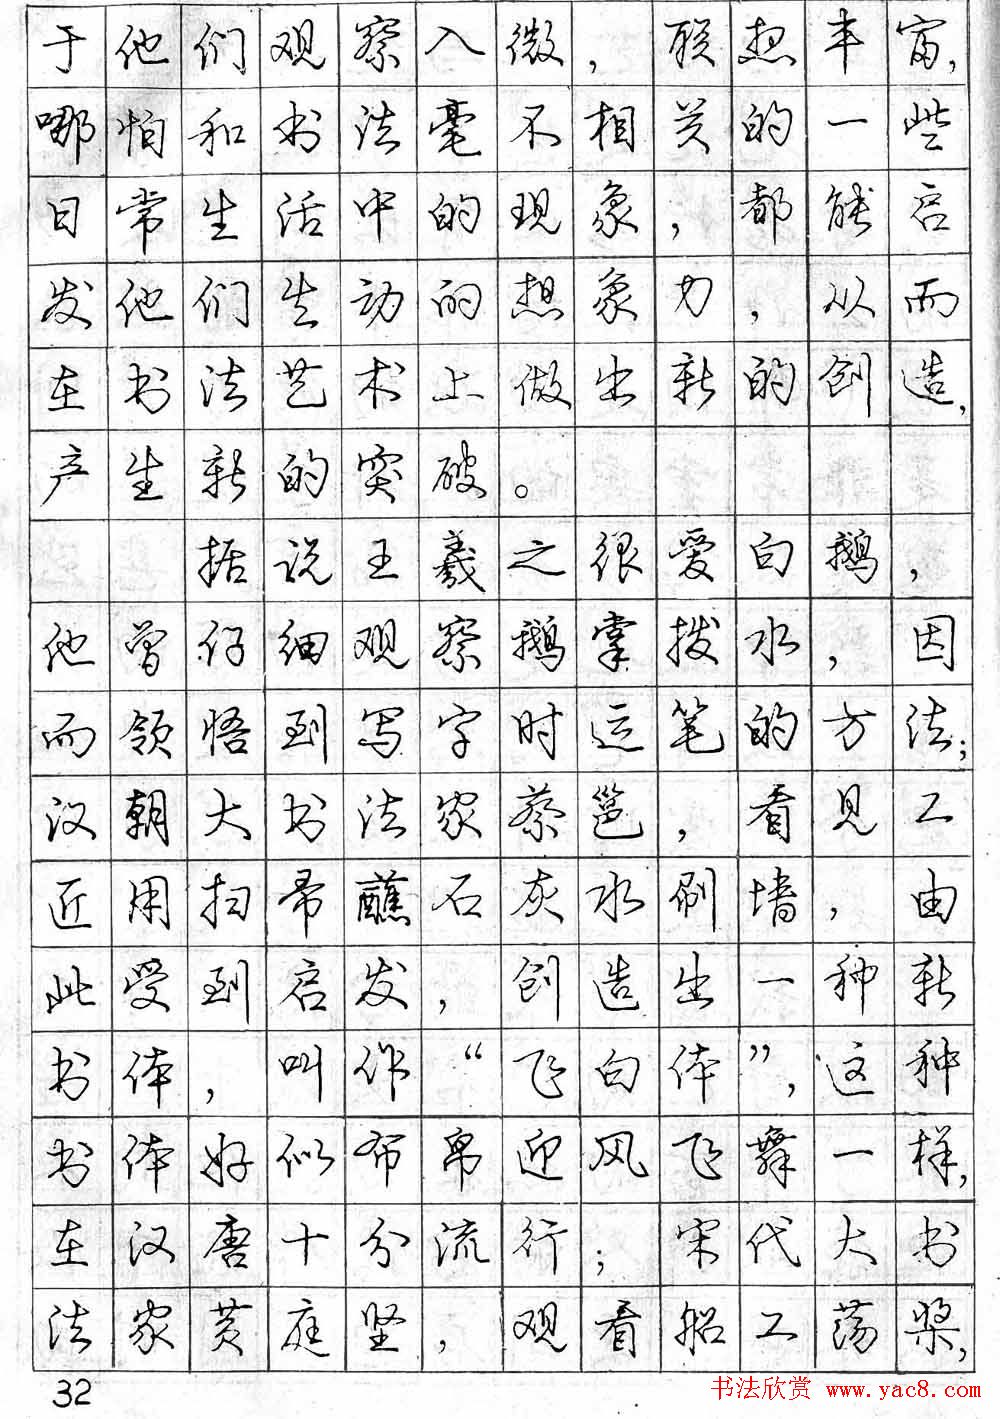 于他们观察入微，联想丰富，
哪怕和书法毫不相关的一些
日常生活中的现象，都能启
发他们生动的想象力，从而
在书法艺术上做出新的创造，
产生新的突破。
据说王羲之很爱白鹅，
他曾仔细观察鹅掌拨水，因
而领悟到写字时运笔的方法；
汉朝大书法家蔡邕，看见工
匠用扫帚蘸石灰水刷墙，由
此受到启发，创造出一种新
书体，叫作“飞白体”，这种
书体好似布帛迎风飞舞一样，
在汉唐十分流行；宋代大书
法家黄庭坚，观看船工荡桨，
32
书法欣赏 www.yac8.com